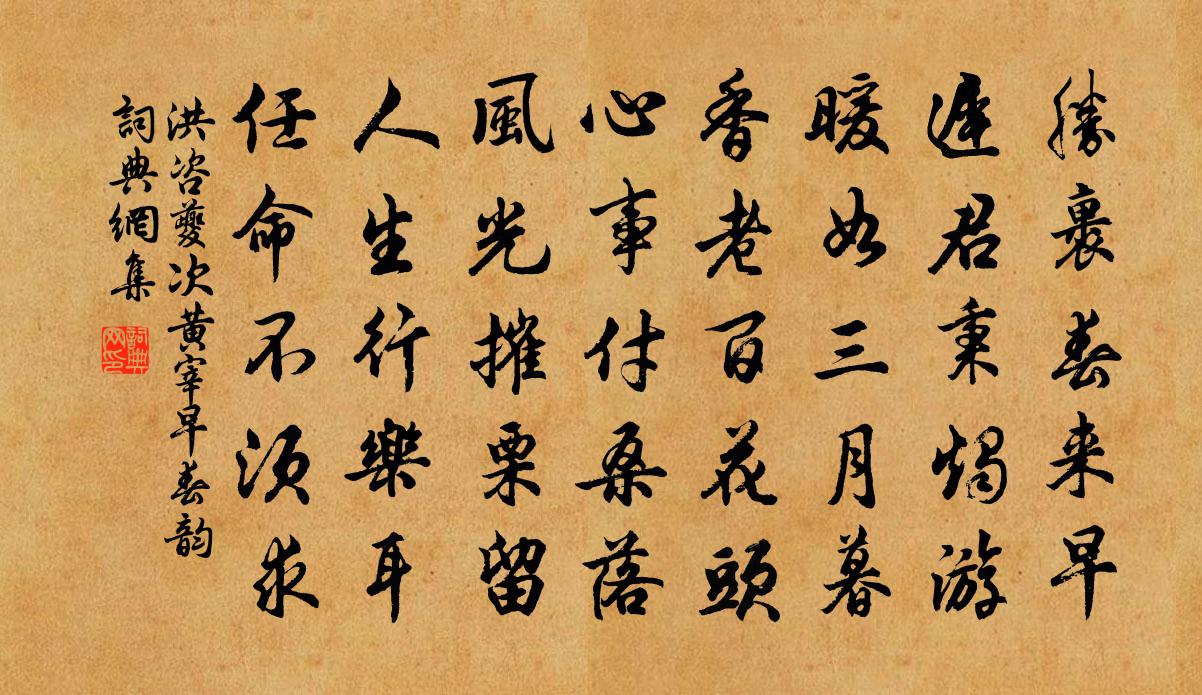 勝裏春来早
遲君秉燭游
暖如三月暮
香老百花頭
心事付桑落
風光摧栗留
人生行樂耳
任命不須求
洪咨夔次黄宰早春韵
詞典網集
詞典网印